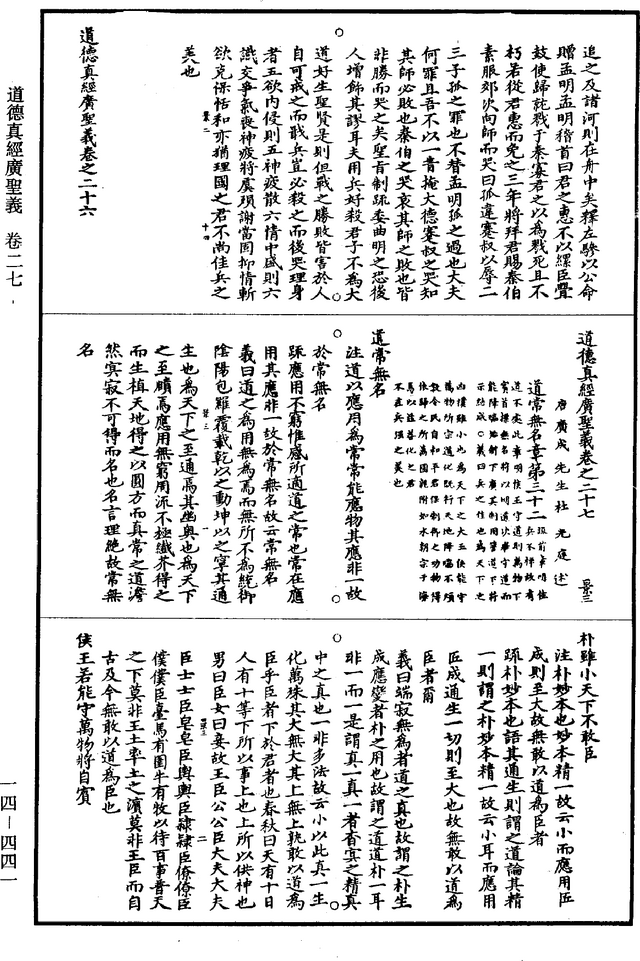 道德真經廣聖義 卷二七
一四—四四一
追之及諸河則在舟中矣釋左驂以公命
贈孟明孟明稽首曰君之惠不以纍臣釁
鼓使歸就戮于秦寡君之以為戮死且不
朽若從君惠而免之三年將拜君賜秦伯
素服郊次向師而哭曰孤違蹇叔以辱二
三子孤之罪也不替孟明孤之過也大夫
何罪且吾不以一眚掩大德蹇叔之哭知
其師必敗也秦伯之哭哀其師之敗也皆
非勝而哭之矣聖旨制疏委曲明之恐後
人增飾其謬耳夫用兵好殺君子不為大
道好生聖賢是則但戰之勝敗皆害於人
自可戒之而戢兵豈必殺之而後哭理身
者五欲內侵則五神疲散六情中盛則六
識交爭氣喪神疲將虞殞謝當罔抑情斬
欲克保恬和亦猶理國之君不尚佳兵之
美也
道德真經廣聖義卷之二十六
道德真經廣聖義卷之二十七 景三
唐廣成先生杜光庭述
道常無名章第三十二
道常無名
注道以應用為常常能應物其應非一故
於常無名
疏應用不窮惟感所適道之常也常在應
用其應非一故於常無名故云常無名
義曰道之為用無為焉而無所不為統御
陰陽包羅覆載乾以之動坤以之寧其通
生也為天下之至通焉其幽奧也為天下
之至賾焉應用無窮周流不極纖芥得之
而生植天地得之以圓方而真常之道澹
然寂寂不可得而名也名言理絕故常無
名
朴雖小天下不敢臣
注朴妙本也妙本精一故云小而應用匠
成則至大故無敢以道為臣者
疏朴妙本也語其通生則謂之道論其精
一則謂之朴妙本精一故云小耳而應用
匠成通生一切則至大也故無敢以道為
臣者爾
義曰端寂無為者道之真也故謂之朴生
成應變者朴之用也故謂之道道朴一耳
非一而一是謂真一真一者杳冥之精真
中之真也一非多法故云小以此真一生
化萬殊其大無大其上無上孰敢以道為
臣乎臣者下於君者也春秋曰天有十日
人有十等下所以事上也上所以供神也
男曰臣女曰妾故王臣公公臣大夫大夫
臣士士臣皂皂臣輿輿臣隸隸臣僚僚臣
僕僕臣臺馬有圉牛有牧以待百事普天
之下莫非王土率土之濱莫非王臣而自
古及今無敢以道為臣也
侯王若能守萬物將自賓